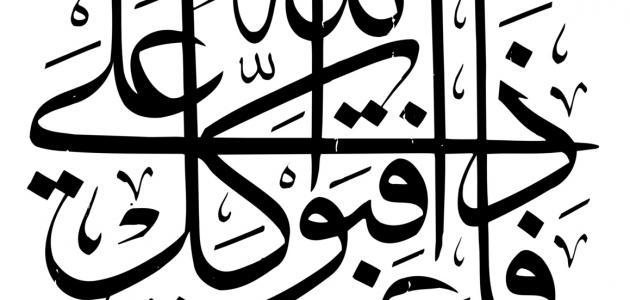 فإذا فتوكل على الله